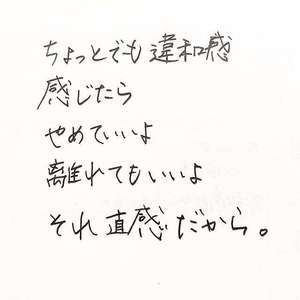 ちょっとでも違和感
感じたら
やめていいよ
離れてもいいよ
それ直感だから。